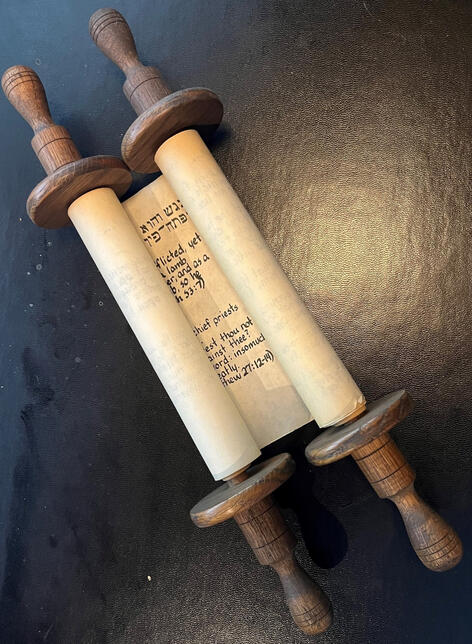 נגש והוא
יפתח־פיו
flicted, yet
lamb
er, and as a
b, so he
h 53:7)
hief priests
est thou not
ainst thee?
ord: insomuc
eatly.
hew 27:12-14)